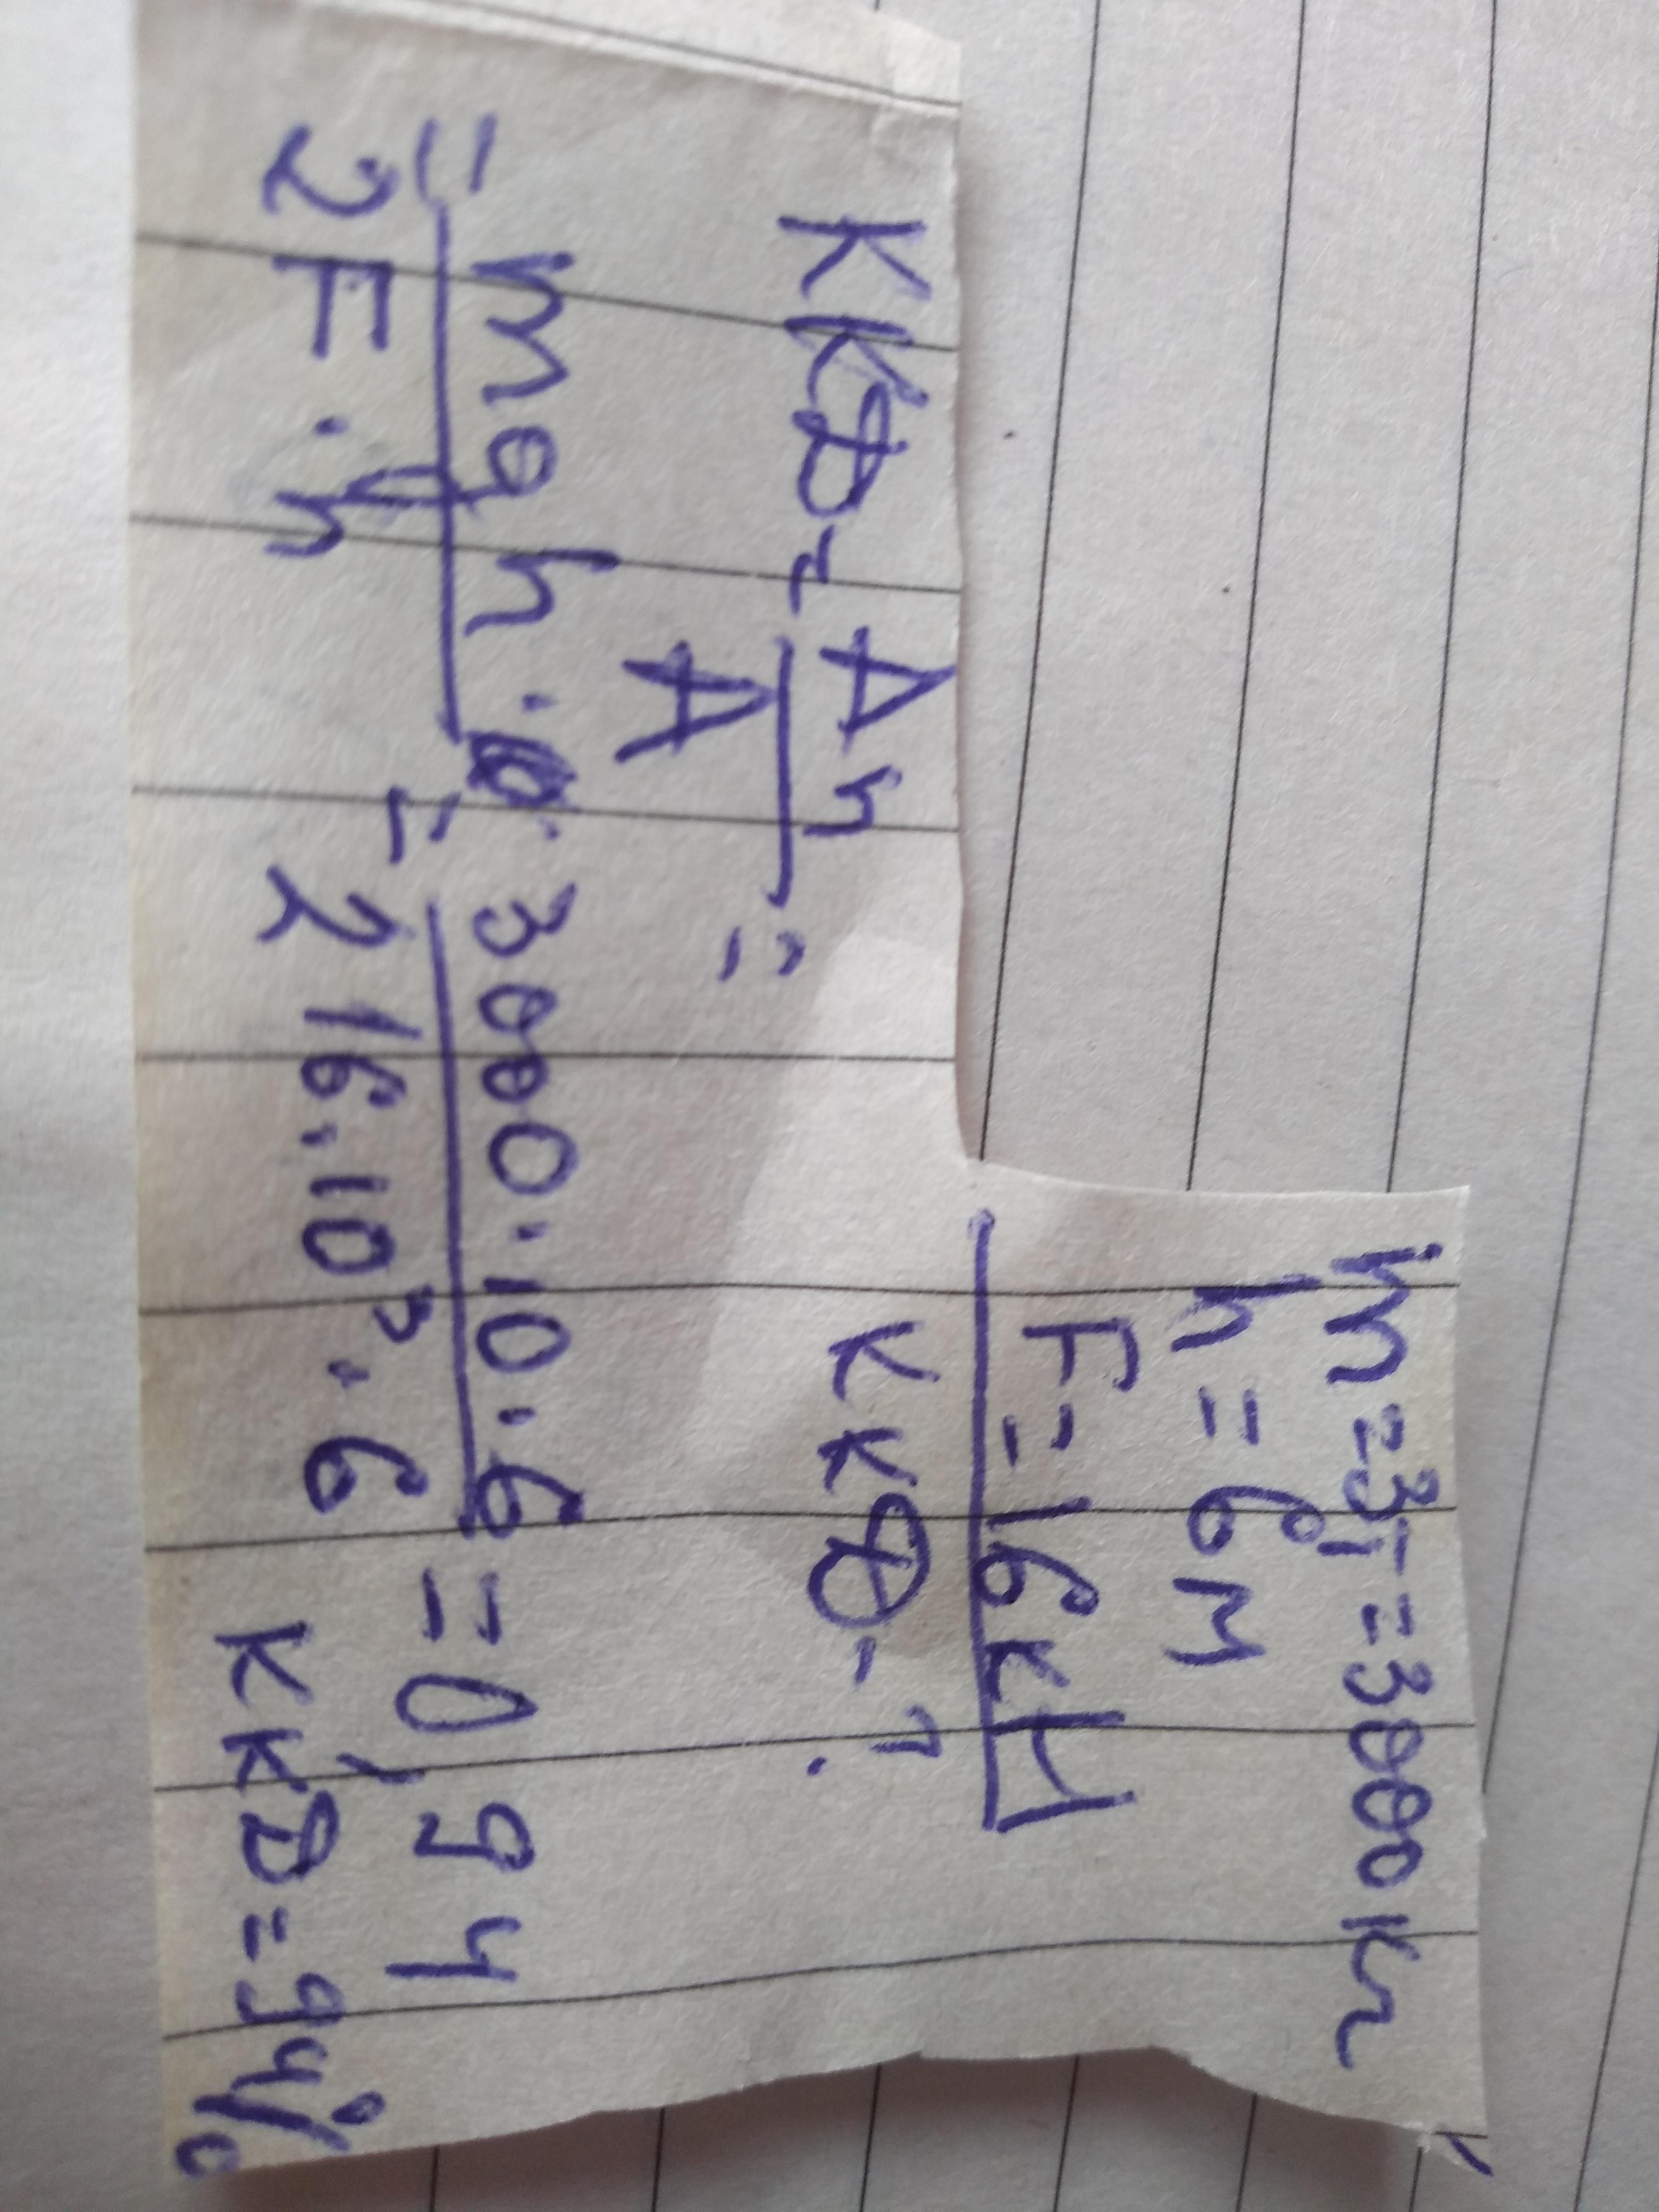 m=3т=3000 кг
h=6м
F=16кН
ККД-?
ККД=Ап/А=
=mgh/2F·h=3000·10·6/2 16·10³·6=0,94
ККД=94%